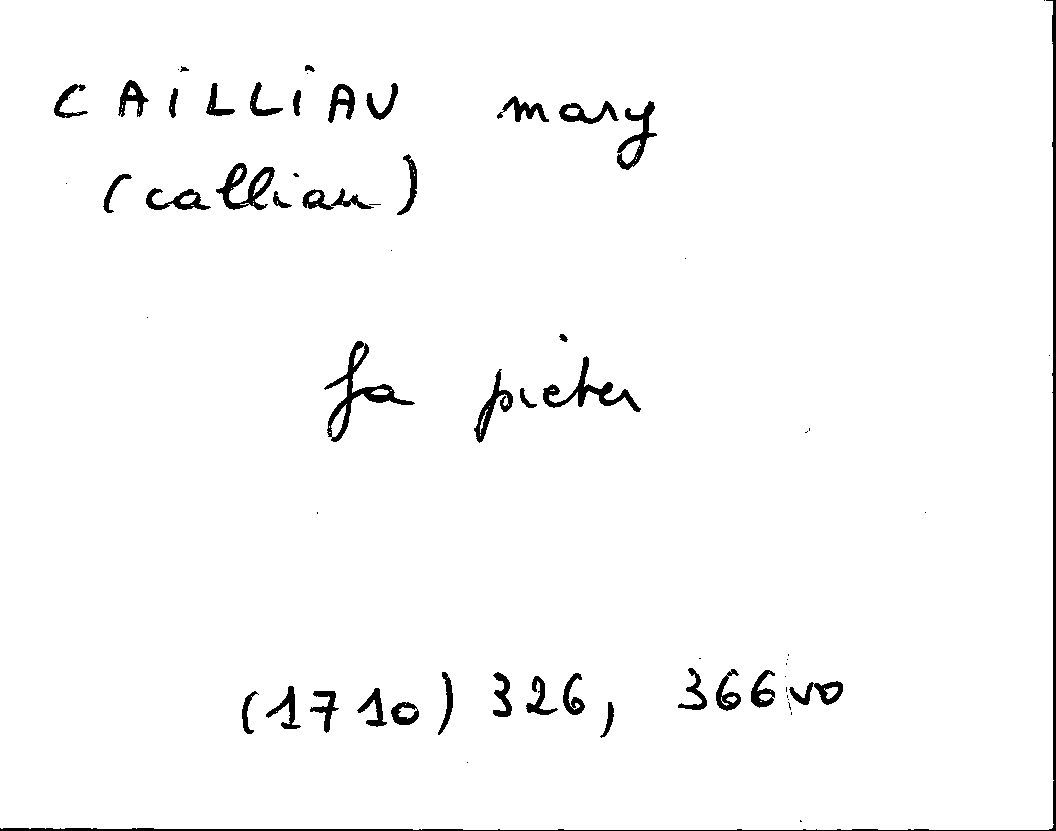 CAiLLiAU mary
(calliau)
fa pieter
(1710) 326, 366vo